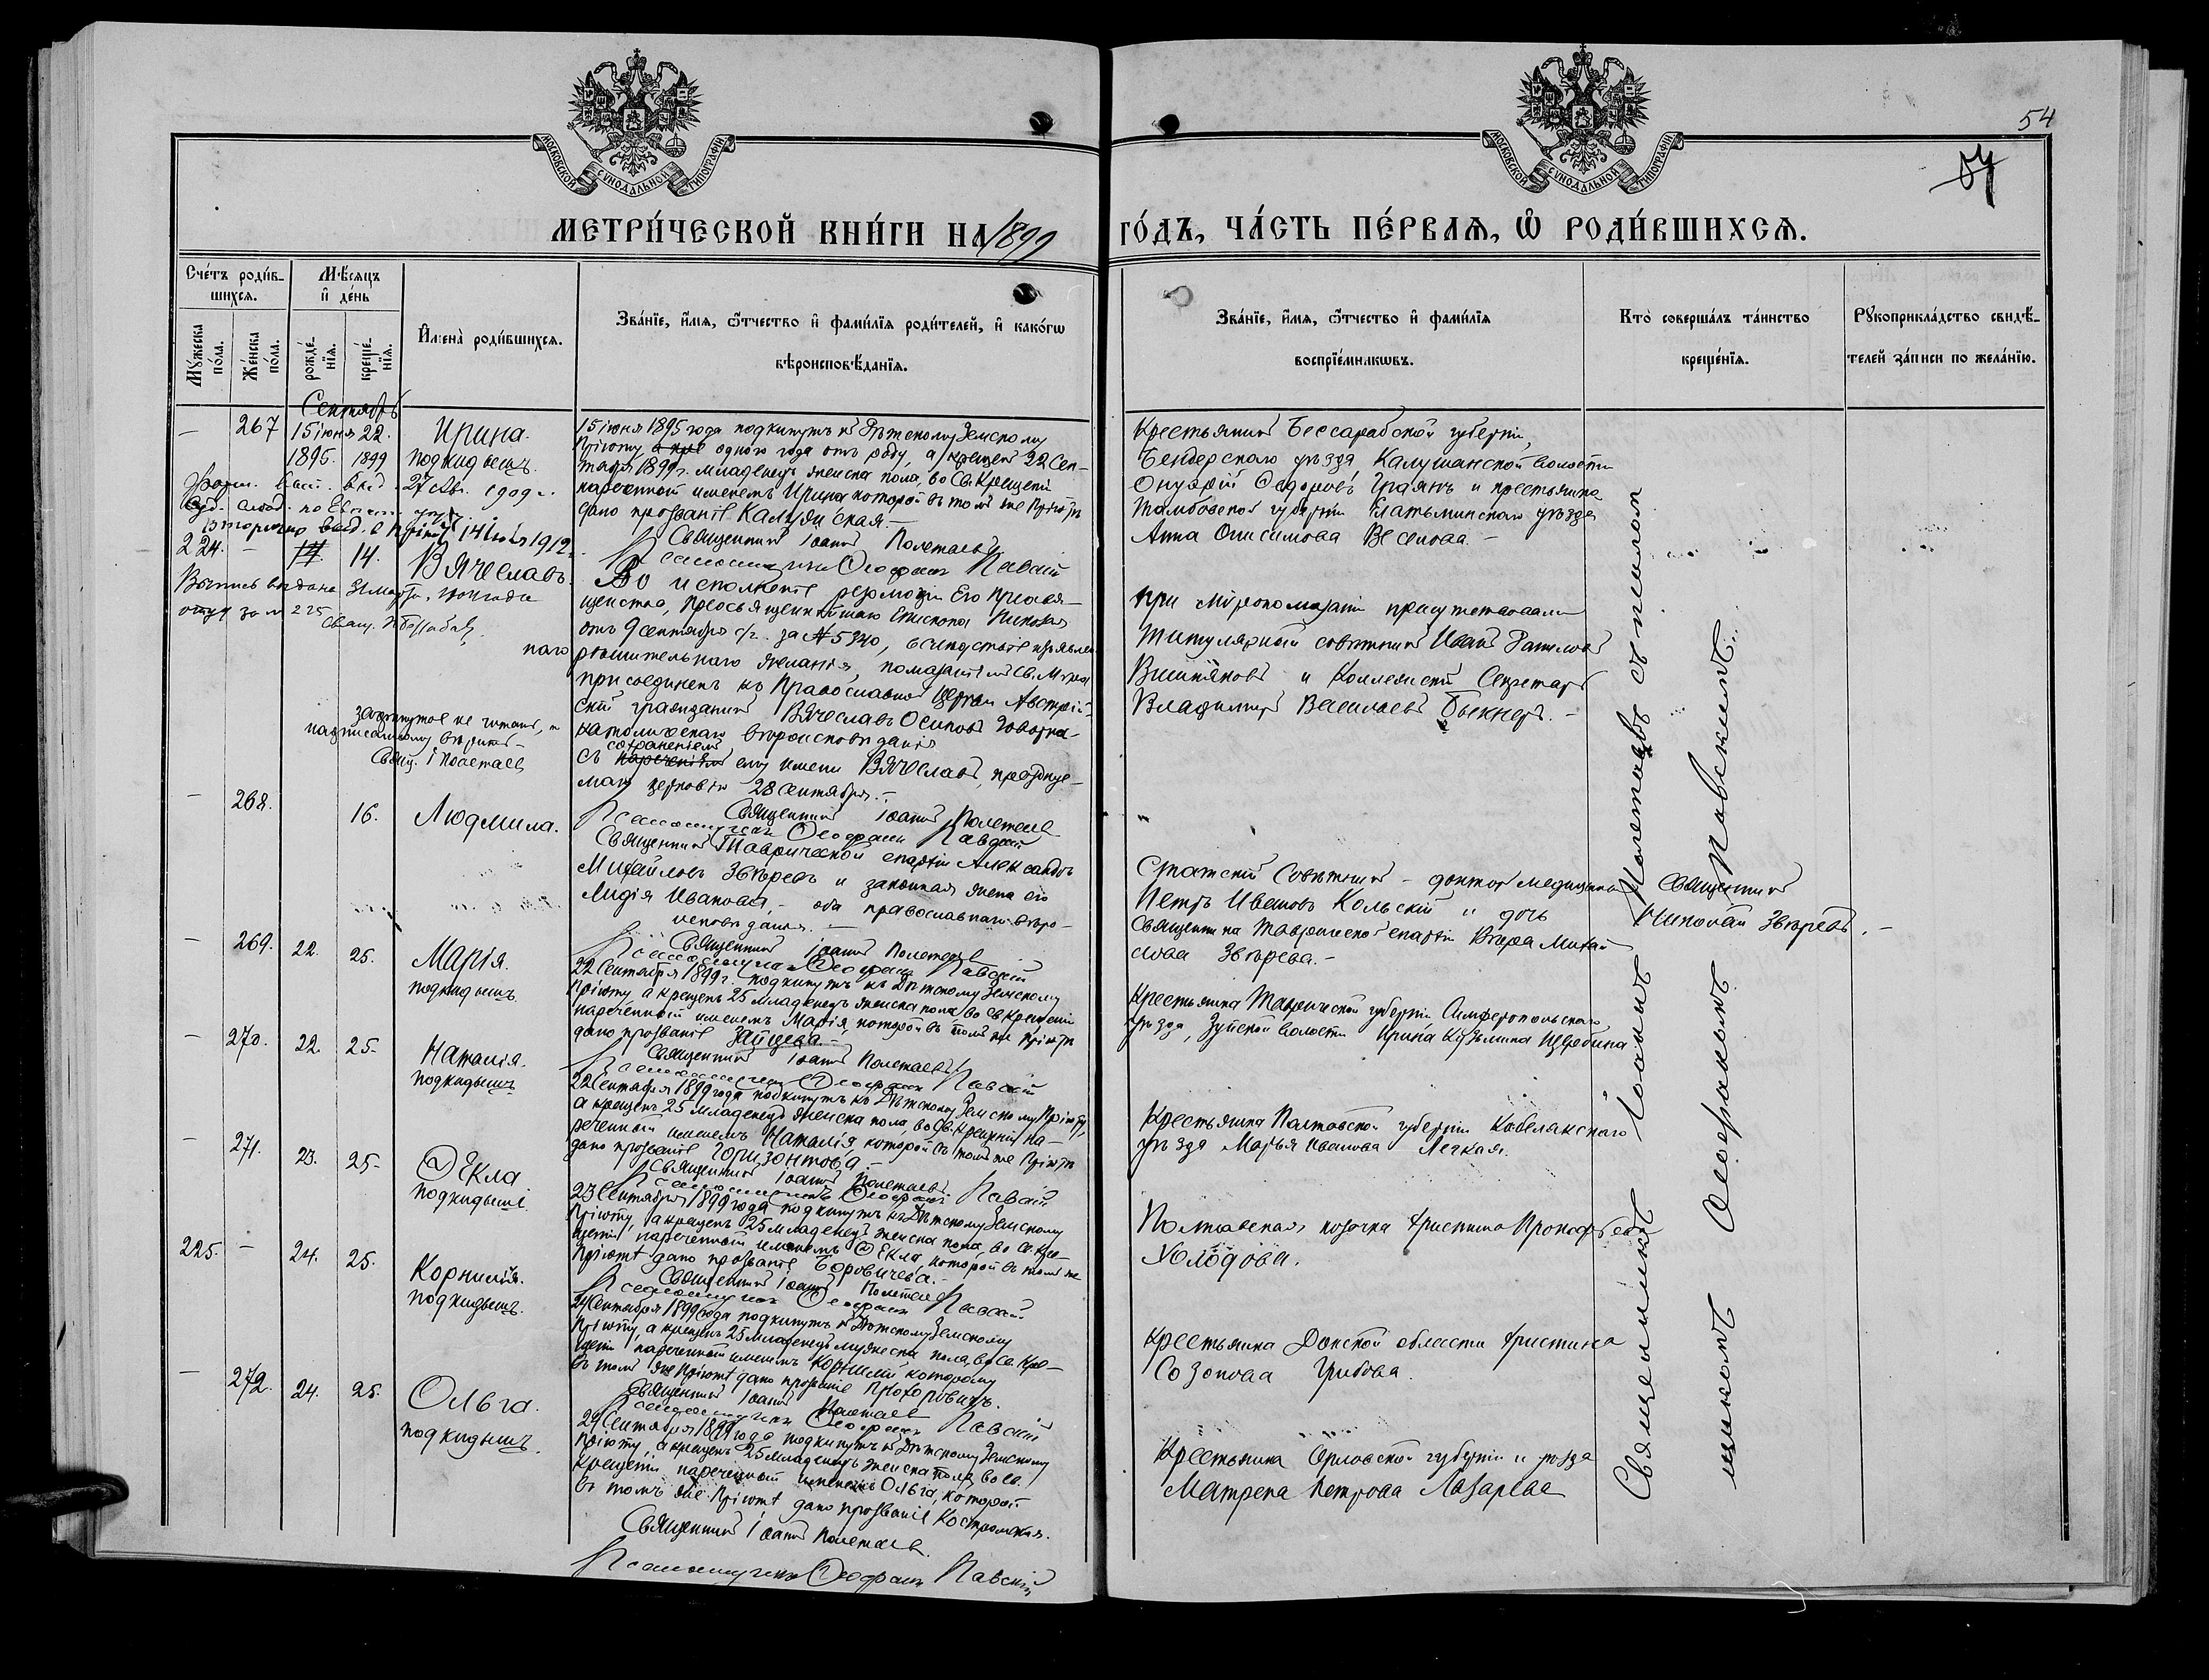 МОСКОВСКОЙ СѴНОДАЛЬНОЙ ТИПОГРАФІИ
МОСКОВСКОЙ СѴНОДАЛЬНОЙ ТИПОГРАФІИ
54
МЕТРИ́ЧЕСКОЙ КНИ́ГИ НА 1899
ГО́ДЪ, ЧА́СТЬ ПЕ́РВАЯ, Ѽ РОДИ́ВШИХСЯ.
Сче́тъ роди́в-
шихся.
Мꙋ́жеска по́ла.
Же́нска по́ла.
Мѣ́сяцъ и҆ де́нь
рожде́-
нїя.
креще́-
нїя.
И҆мена̀ роди́вшихся.
Зва́нїе, и҆́мя, ѻ҆́тчество и҆ фами́лїя роди́телей, и҆ како́гѡ
вѣроисповѣ́данїя.
Зва́нїе, и҆́мя, ѻ҆́тчество и҆ фами́лїя
воспрїе́мникѡвъ.
Кто̀ соверша́лъ та́инство
креще́нїя.
Рꙋкоприкла́дство свидѣ́-
телей за́писи по жела́нїю.
Сентябрь
267
15 іюня 22.
1895. 1899
Ирина.
подкидышъ.
15 іюня 1895 года подкинутъ къ Дѣтскому Земскому
Пріюту одного года отъ роду, а крещенъ 22 Сен-
тября 1899 г. младенецъ женска пола, во Св. Крещеніи
нареченный именемъ Ирина которой въ томъ же Пріютѣ
дано прозваніе Калужская
Священникъ Іоаннъ Полетаевъ
Псаломщикъ Ѳеофанъ Павскій
Крестьянинъ Бессарабской губерніи,
Бендерскаго уѣзда, Калушанской волости
Онуфрій Ѳедоровъ Граянъ и крестьянка
Тамбовской губерніи Елатьминскаго уѣзда
Анна Онисимова Веселова.
вторично выд. в 14 іюня 1912
224. 14.
Вячеславъ.
Во исполненіе резолюціи Его Преосвя-
щенства, Преосвященнѣйшаго Епископа Николая
отъ 9 сентября с/г. за № 5340, вслѣдствіе изъявлен-
наго рѣшительнаго желанія, помазаніемъ Св. Мѵра
присоединенъ къ Православной церкви Австрій-
скій гражданинъ Вячеславъ Осиповъ
католическаго вѣроисповѣданія
съ сохраненіемъ ему имени Вячеславъ, празднуе-
маго церковію 28 Сентября.
Священникъ Іоаннъ Полетаевъ
Псаломщикъ Ѳеофанъ Павскій
зачеркнутое не читать, а
надписанному вѣрить
Свящ. І Полетаев
При мѵропомазаніи присутствовали
Титулярный совѣтникъ Иванъ Даниловъ
Вишняковъ и Коллежскій Секретарь
Владимиръ Васильевъ Быкнеръ.
268.
16.
Людмила.
Священникъ Таврической епархіи Александръ
Михайловъ Звѣревъ и законная жена его
Лидія Иванова, оба православнаго вѣро-
исповѣданія.
Священникъ Іоаннъ Полетаевъ
Псаломщикъ Ѳеофанъ Павскій
Статскій Совѣтникъ - докторъ медицины
Петръ Ивановъ Кольскій и дочь
Священника Таврической епархіи Вѣра Михай
лова Звѣрева.
Священникъ
Николай Звѣревъ.
269.
22. 25.
Марія.
подкидышъ
22 Сентября 1899 г. подкинутъ къ Дѣтскому Земскому
Пріюту а крещенъ 25 младенецъ женска пола во Св Крещеніи
нареченный именемъ Марія, которой въ томъ же Пріютѣ
дано прозваніе Зайцева.
Священникъ Іоаннъ Полетаевъ
Псаломщикъ Ѳеофанъ Павскій
Крестьянка Таврической губерніи Симферопольскаго
уѣзда, Зуйской волости Ирина Кузьмина
270.
22. 25.
Наталія.
подкидышъ
22 Сентября 1899 года подкинутъ къ Дѣтскому Земскому Пріюту,
а крещенъ 25 младенецъ женска пола, во Св. Крещеніи на-
реченный именемъ Наталія которой въ томъ же Пріютѣ
дано прозваніе Горизонтова.
Священникъ Іоаннъ Полетаевъ
Псаломщикъ Ѳеофанъ Павскій
Крестьянка Полтавской губерніи Кобелякскаго
уѣзда Марья Иванова Легкая.
271.
23. 25.
Ѳекла
подкидышъ.
23 Сентября 1899 года подкинутъ къ Дѣтскому Земскому
Пріюту, а крещенъ 25 младенецъ женска пола, во св. кре-
щеніи нареченный именемъ Ѳекла, которой въ томъ же
Пріютѣ дано прозваніе Боровичева.
Священникъ Іоаннъ Полетаевъ
Псаломщикъ Ѳеофанъ Павскій
Полтавская козачка Христина Прокофьева
Холодова.
225.
24. 25.
Корнилій.
подкидышъ.
24 Сентября 1899 года подкинутъ къ Дѣтскому Земскому
Пріюту, а крещенъ 25 младенецъ мужеска пола, во св. Кре-
щеніи нареченный именемъ Корнилій которому
въ томъ же Пріютѣ дано прозваніе Прохоровичъ.
Священникъ Іоаннъ Полетаевъ
Псаломщикъ Ѳеофанъ Павскій
Крестьянка Донской области Христина
Созонова Грибова.
272.
24. 25.
Ольга.
подкидышъ.
24 Сентября 1899 года подкинутъ къ Дѣтскому Земскому
Пріюту, а крещенъ 25 младенецъ женска пола, во св.
Крещеніи нареченный именемъ Ольга, которой
въ томъ же Пріютѣ дано прозваніе Костромская.
Священникъ Іоаннъ Полетаевъ
Псаломщикъ Ѳеофанъ Павскій
Крестьянка Орловской губерніи и уѣзда
Матрена Петрова Лазарева
Священникъ Іоаннъ Полетаевъ съ псалом
щикомъ Ѳеофаномъ Павскимъ.